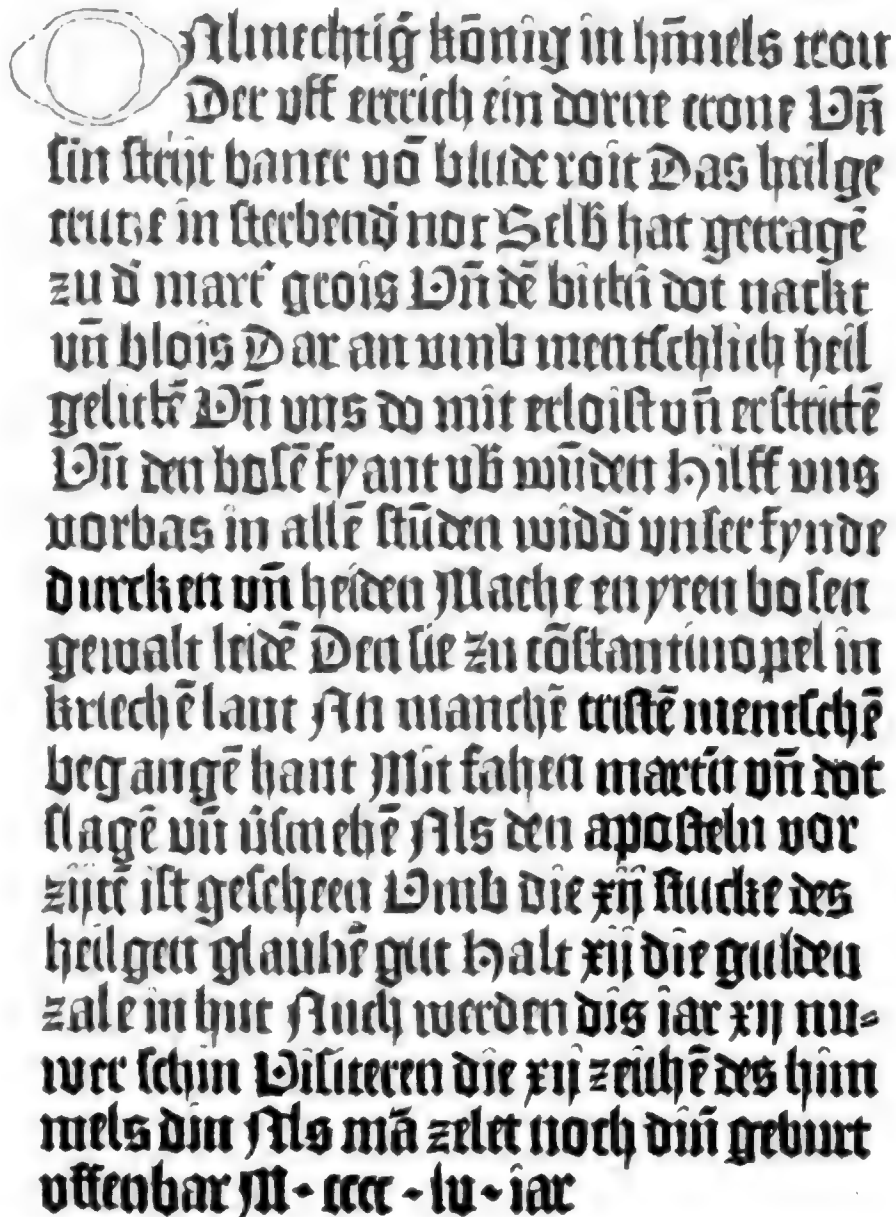 O Almechtig̃ kōnig in hm̄els tron
Der uff ertrich ein dorne crone Vn̄
sin strijt baner vō blude roit Das heilge
crutze in sterbend̄ not Selb̄ hat getragē
zu d̄ mart̄ grois Vn̄ dē bittn̄ dot nackt
un̄ blois Dar an umb mentschlich heil
gelittē Vn̄ uns do mit erloist un̄ erstrittē
Vn̄ den bosē fyant ub̄ wūden Hilff uns
vorbas in allē stūden widd̄ vnser fynde
durcken un̄ heiden Mache en yren bosen
gewalt leidē Den sie zu cōstantinopel in
kriechē lant An manchē cristē mentschē
begangē hant Mit fahen martn̄ vn̄ dot
slagē un̄ v̄smehē Als den aposteln vor
zijtē ist gescheen Umb die xij stucke des
heilgen glaubē gut Halt xij die gulden
zale in hut Auch werden dis iar xij nu⸗
wer schin Visiteren die xij zeichē des him
mels din Als mā zelet noch din̄ geburt
offenbar M· cccc · lv · iar